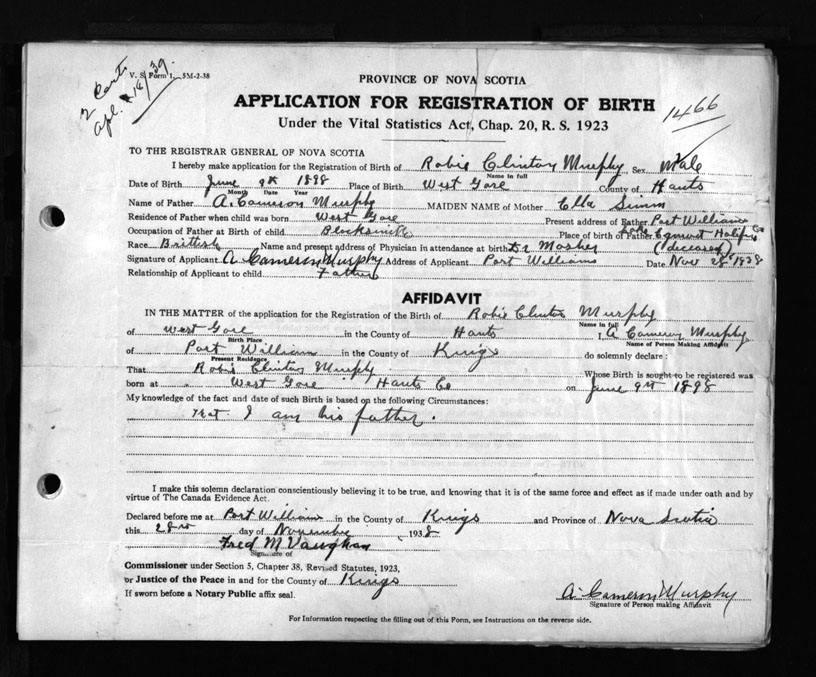 2 Cards
Apl. 18/39.
V. S. Form 1. 5M-2-38
PROVINCE OF NOVA SCOTIA
APPLICATION FOR REGISTRATION OF BIRTH
1466
Under the Vital Statistics Act, Chap. 20, R. S. 1923
TO THE REGISTRAR GENERAL OF NOVA SCOTIA
I hereby make application for the Registration of Birth of Robie Clinton Murphy Sex Male
Name in full
Date of Birth June 9th 1898 Place of Birth West Gore County of Hants
Month Date Year
Name of Father A. Cameron Murphy MAIDEN NAME of Mother Ella Simm
Residence of Father when child was born West Gore Present address of Father Port Williams
Occupation of Father at Birth of child Blacksmith Place of birth of Father Lake Egmont Halifax Co
Race British Name and present address of Physician in attendance at birth Dr Mosher (deceased)
Signature of Applicant A Cameron Murphy Address of Applicant Port Williams Date Nov 28th 1938
Relationship of Applicant to child Father
AFFIDAVIT
IN THE MATTER of the application for the Registration of the Birth of Robie Clinton Murphy
Name in full
of West Gore in the County of Hants I, A Cameron Murphy
Birth Place Name of Person Making Affidavit
of Port William in the County of Kings do solemnly declare :
Present Residence
That Robie Clinton Murphy Whose Birth is sought to be registered was
born at West Gore Hants Co on June 9th 1898
My knowledge of the fact and date of such Birth is based on the following Circumstances:
That I am his father.
I make this solemn declaration conscientiously believing it to be true, and knowing that it is of the same force and effect as if made under oath and by
virtue of The Canada Evidence Act.
Declared before me at Port William in the County of Kings and Province of Nova Scotia
this 28th day of November 1938
Fred M Vaughan
Signature of
Commissioner under Section 5, Chapter 38, Revised Statutes, 1923,
or Justice of the Peace in and for the County of Kings
If sworn before a Notary Public affix seal.
A. Cameron Murphy
Signature of Person making Affidavit
For Information respecting the filling out of this Form, see Instructions on the reverse side.